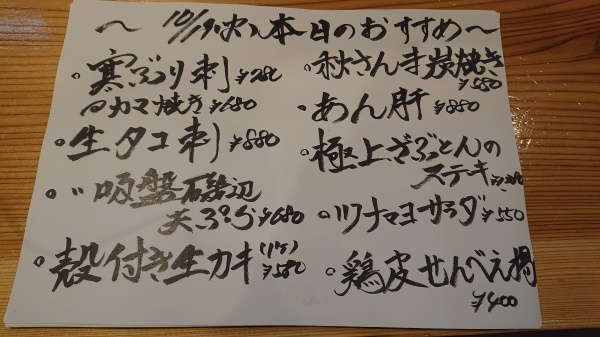 ～ 10/19(火) 本日のおすすめ～
・寒ぶり刺 ¥780
〃カマ焼き ¥680
・生タコ刺 ¥880
・〃吸盤磯辺
天ぷら ¥680
・殻付き生カキ(1ケ) ¥580
・秋さんま炭焼き
¥580
・あん肝 ¥850
・極上ざぶとんの
ステキ
・ツナマヨサラダ ¥550
・鶏皮せんべえ揚
¥400